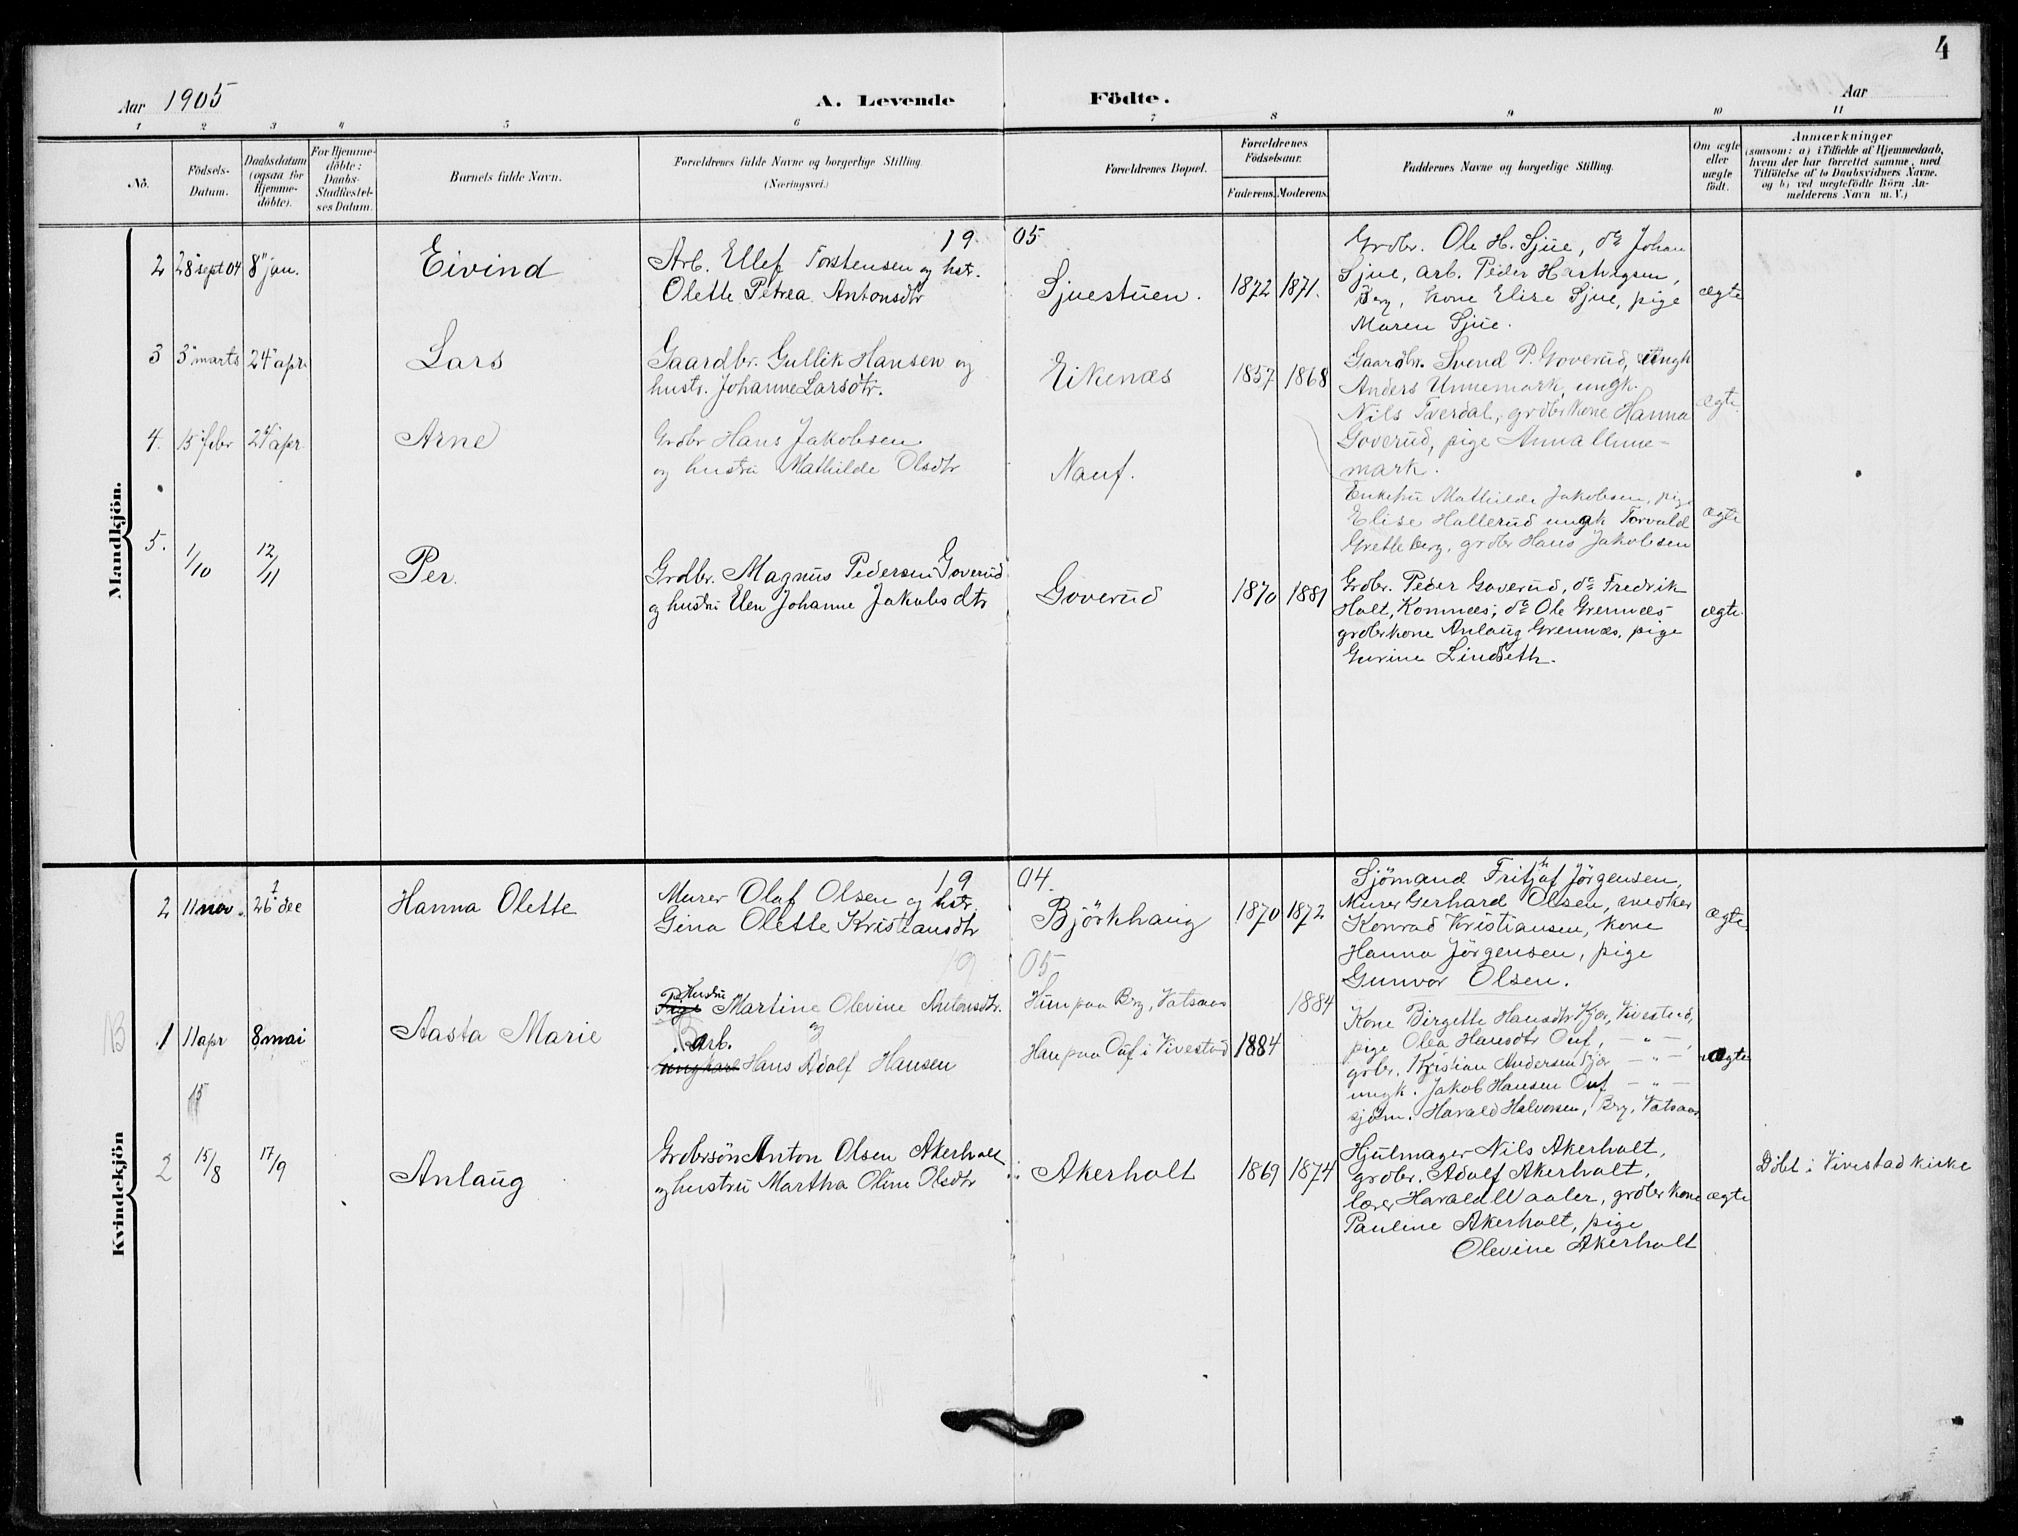 4
Aar 1905
A. Levende Födte.
Aar
1 2 3 4 5 6 7 8 9 10 11
No.
Födsels-Datum.
Daabsdatum (ogsaa for Hjemme-döbte).
For Hjemme-döbte: Daabs-Stadfæstel-ses Datum.
Barnets fulde Navn.
Forældrenes fulde Navne og borgerlige Stilling. (Næringsvei.)
Forældrenes Bopæl.
Forældrenes Födselsaar.
Faderens. Moderens.
Faddernes Navne og borgerlige Stilling.
Om ægte eller uægte födt.
Anmærkninger
(saasom: a) i Tilfælde af Hjemmedaab,
hvem der har forrettet samme, med
Tilföielse af to Daabsvidners Navne.
og b) ved uægtefödte Börn An-
melderens Navn m. V.)
Mandkjön.
1905
2 28 sept 04 8 jan. Eivind
Arb. Ellef Torstensen og hstr.
Olette Petrea Antonsdtr
Sjuestuen. 1872 1871.
Grdbr. Ole H. Sjue, do Johan
Sjue, arb. Peder Hartvigsen,
Berg, kone Elise Sjue, pige
Maren Sjue.
ægte
3 3 marts 24 apr. Lars
Gaardbr. Gullik Hansen og
hustr. Johanne Larsdtr.
Eikenæs 1857 1868
Gaardbr. Svend P. Goverud, ungk
Anders Unnemark, ungk.
Nils Tverdal, grdbrkone Hanna
Goverud, pige Anna Unne-
mark.
ægte.
4. 15 febr 24 apr. Arne
Grdbr Hans Jakobsen
og hustru Mathilde Olsdtr
Nauf.
Enkefru Mathilde Jakobsen, pige
Elise Hallerud ungk Torvald
Gretteberg, grdbr Hans Jakobsen
ægte
5. 1/10 12/11 Per.
Grdbr. Magnus Pedersen Goverud
og hustru Elen Johanne Jakobsdtr
Goverud 1870 1881
Grdbr. Peder Goverud, do Fredrik
Holt, Komnæs; do Ole Grennæs
grdbrkone Anlaug Grennæs, pige
Gurine Lindseth.
ægte.
Kvindekjön
1904.
2 11 nov. 26 dec Hanna Olette
Murer Olaf Olsen og hstr.
Gina Olette Kristiansdtr
Björkhaug 1870 1872
Sjömand Fritjof Jörgensen,
Murer Gerhard Olsen, snedker
Konrad Kristiansen, kone
Hanna Jörgensen, pige
Gunvor Olsen.
ægte
1905
1 11 apr 8 mai Aasta Marie
Hustru
Pige Martine Olevine Antonsdtr.
og
Arb.
Ungkarl Hans Adolf Hansen
Hun paa Berg, Vatsaas 1884
Han paa Ouf i Vivestad 1884
Kone Birgette Hansdtr Kjær, Vivestad,
pige Olea Hansdtr Ouf, — " —,
grdbr. Kristian Andersen Kjær — " —
ungk. Jakob Hansen Ouf — " —
sjöm. Harald Halvorsen, Berg, Vatsaas
ægte
2 15/8 17/9 Anlaug
Grdbrsön Anton Olsen Akerholt
og hustru Martha Oline Olsdtr
Akerholt 1869 1874
Hjulmager Nils Akerholt,
grdbr. Adolf Akerholt,
lærer Harald Waaler, grdbrkone
Pauline Akerholt, pige
Olevine Akerholt
ægte
Döbt i Vivestad kirke